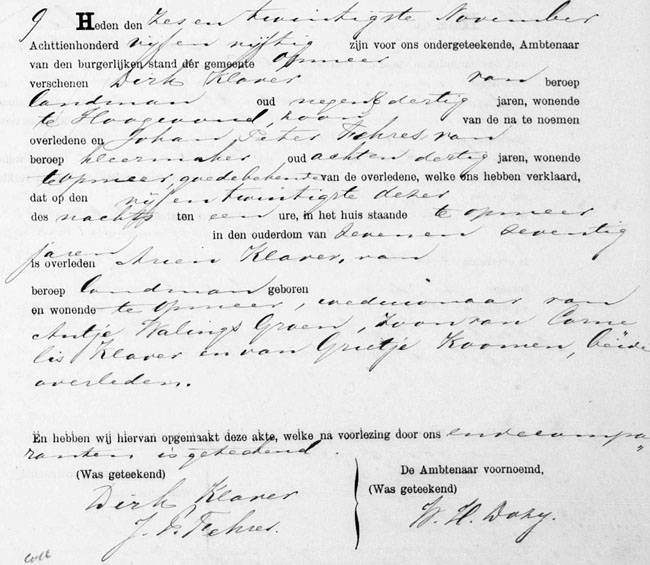 9 Heden den Zesentwintigste November
Achttienhonderd vijfenvijftig zijn voor ons ondergeteekende, Ambtenaar
van den burgerlijken stand der gemeente Opmeer
verschenen Dirk Klaver van beroep
landman oud negen & dertig jaren, wonende
te Hoogwoud, zoon van de na te noemen
overledene en Johan Peter Fehres van
beroep kleermaker oud achten dertig jaren, wonende
te Opmeer, goede bekende van de overledene, welke ons hebben verklaard,
dat op den vijfentwintigste dezer
des nachts ten een ure, in het huis staande te Opmeer
in den ouderdom van Zevenen Zeventig
jaren
is overleden Arien Klaver, van
beroep landman geboren
en wonende te Opmeer, weduwnaar van
Antje Walings Groen, Zoon van Corne
lis Klaver en van Grietje Koomen, beide
overleden.
En hebben wij hiervan opgemaakt deze akte, welke na voorlezing door ons en de compa„
ranten is geteekend.
(Was geteekend)
Dirk Klaver
J. P. Fehres.
De Ambtenaar voornoemd,
(Was geteekend)
W. H. Dozy.